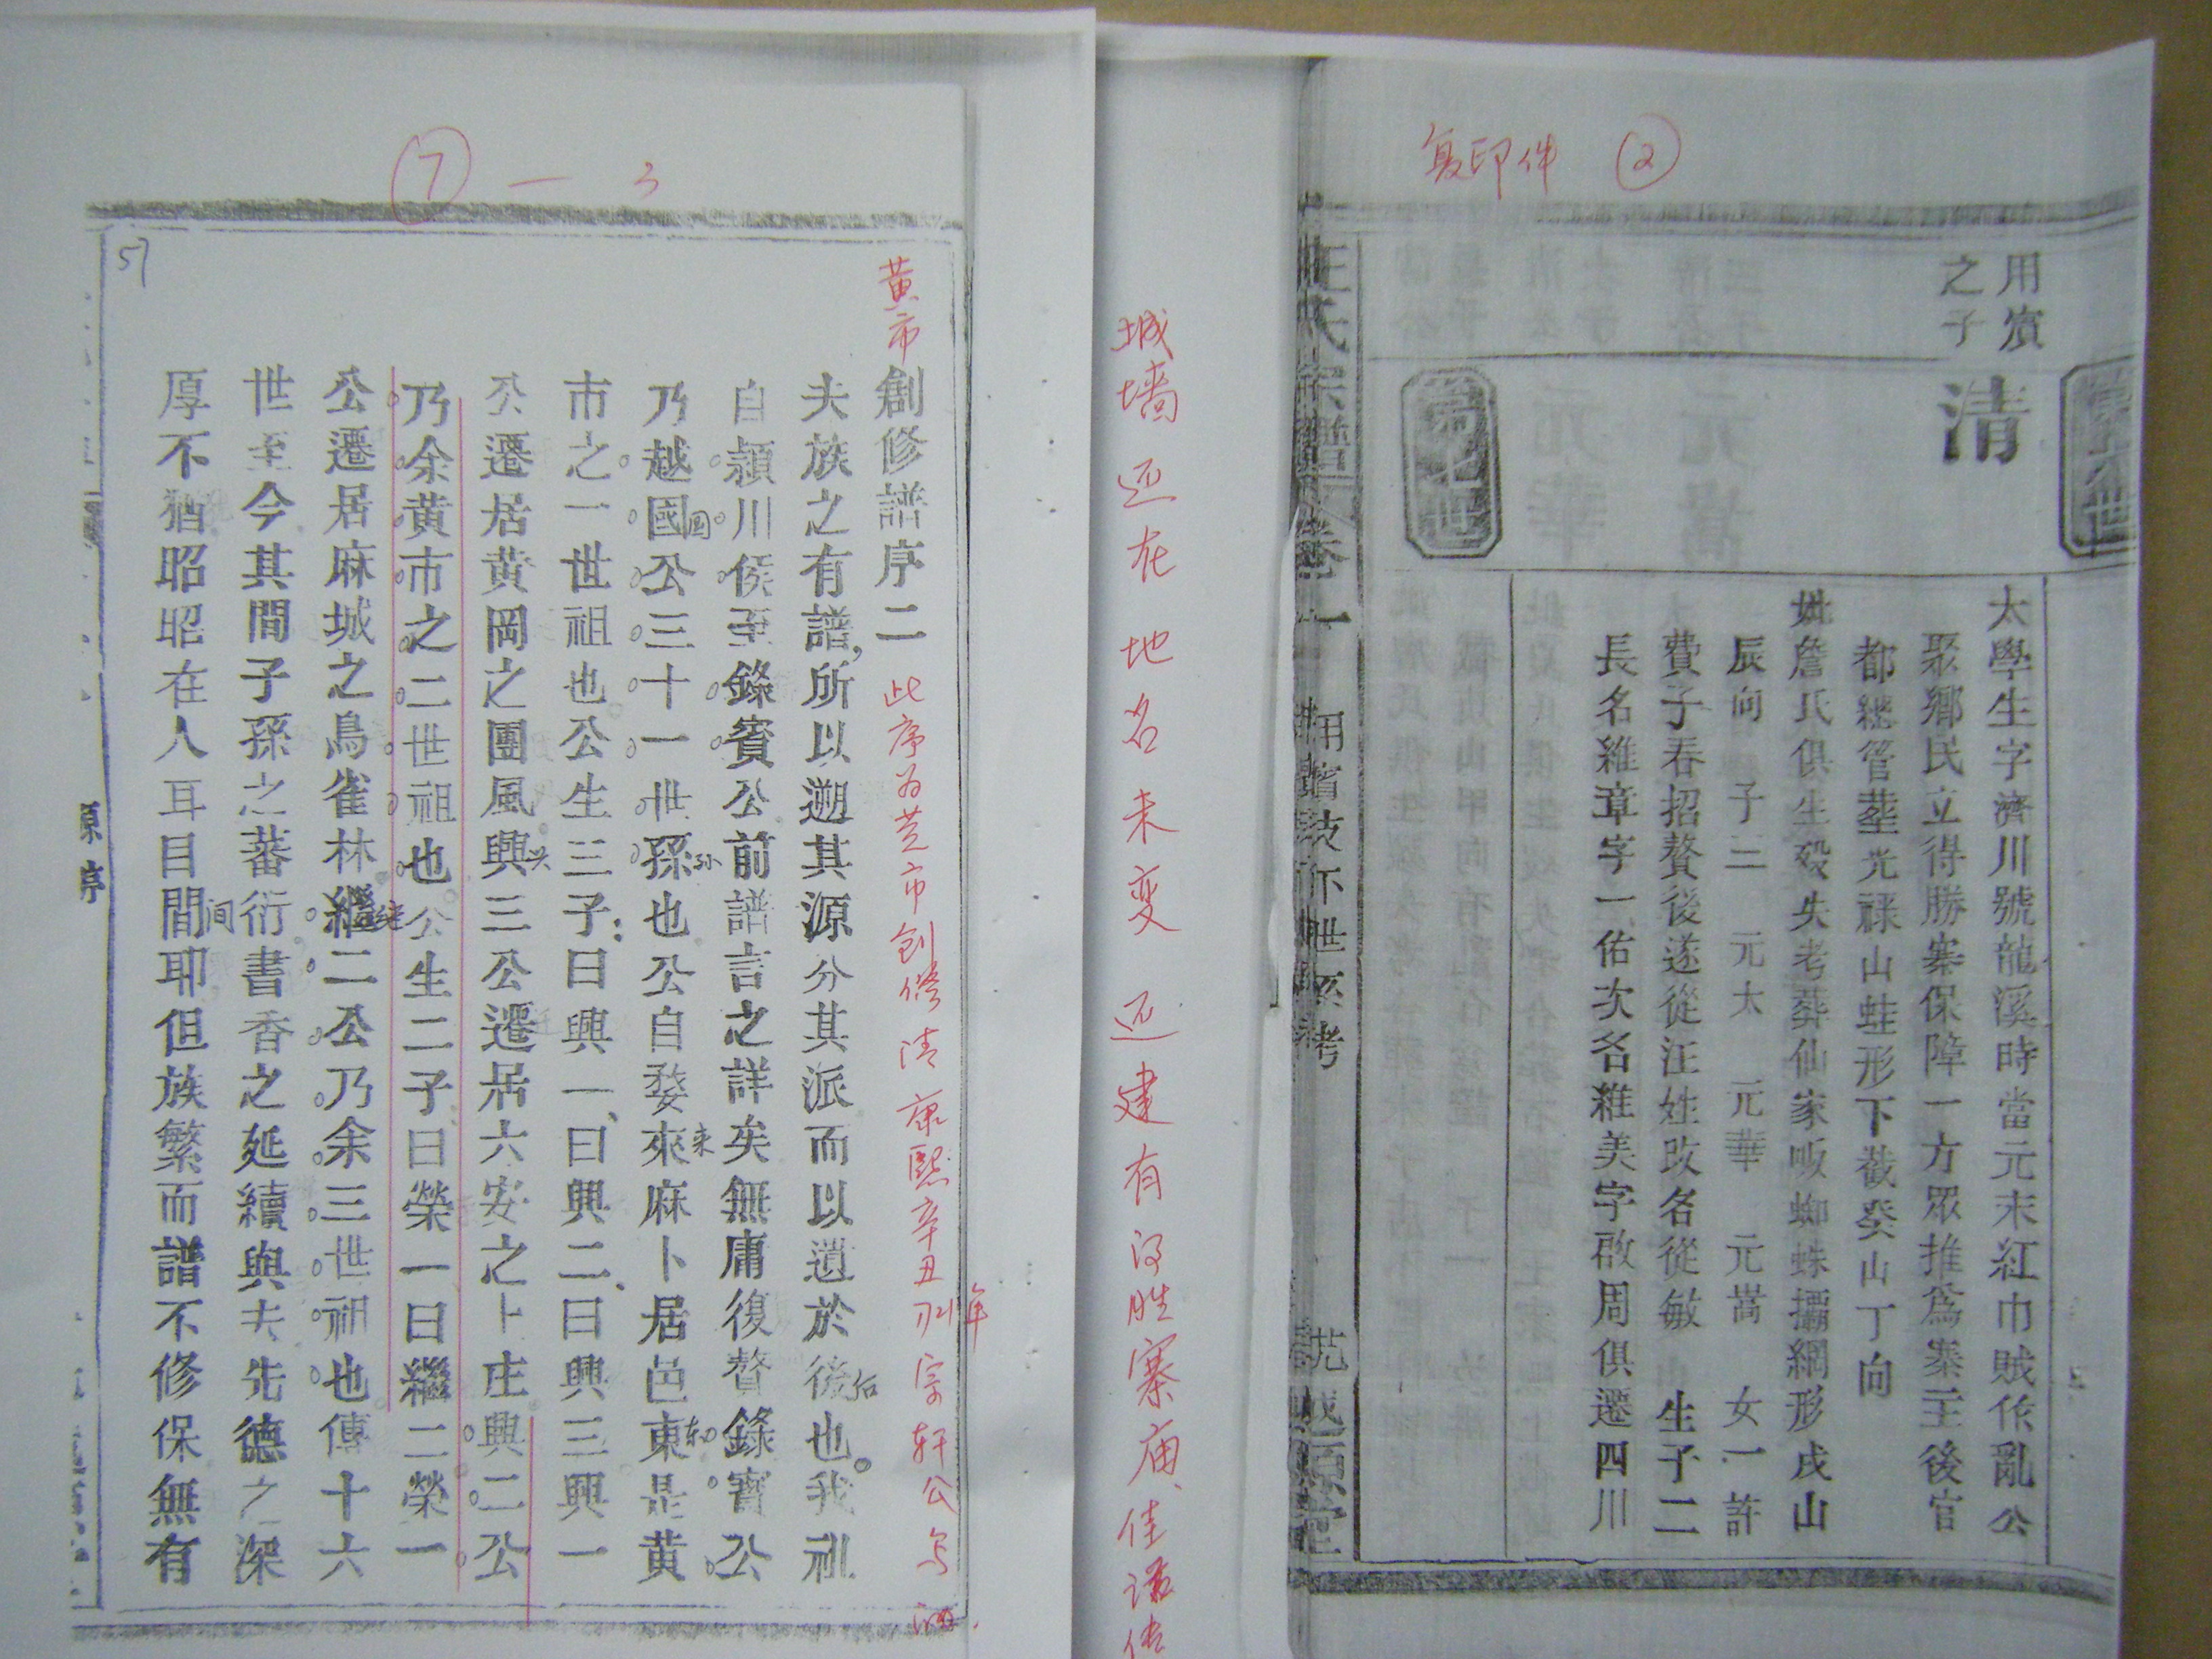 复印件 ②
用賓
之子
清
太學生字濟川號龍溪時當元末紅巾賊作亂公
聚鄉民立得勝寨保障一方眾推爲寨主後官
都總管塟光祿山蛙形下截癸山丁向
妣詹氏俱生殁失考葬仙家坂蜘蛛攝網形戌山
辰向 子三 元太 元華 元嵩 女一許
費子春招贅後遂從汪姓改名從敏 生子二
長名維章字一佑次名維美字啟周俱遷四川
汪氏宗譜 卷一 用賓技下世系考
城墙还在地名未变还建有得胜寨庙佳话传
⑦一3
57
黄市創修譜序二 此序为黄市创修清康熙辛丑年宗轩公写
夫族之有譜,所以遡其源分其派而以遺於後后也。我祖
自潁川侯至錄賓公前譜言之詳矣無庸復贅錄賓公
乃越國国公三十一世孫孙也公自婺來来麻卜居邑東东是黄
市之一世祖也公生三子:曰興一、曰興二、曰興三興一
公遷居黄岡之團風興兴三公遷居六安之卜庄興二公
乃余黄市之二世祖也公生二子曰榮一曰繼二榮一
公遷居麻城之鳥雀林繼继二公乃余三世祖也傳十六
世至今其間子孫之蕃衍書香之延續與夫先德之深
厚不猶昭昭在人耳目間间耶但族繁而譜不修保無有
原序